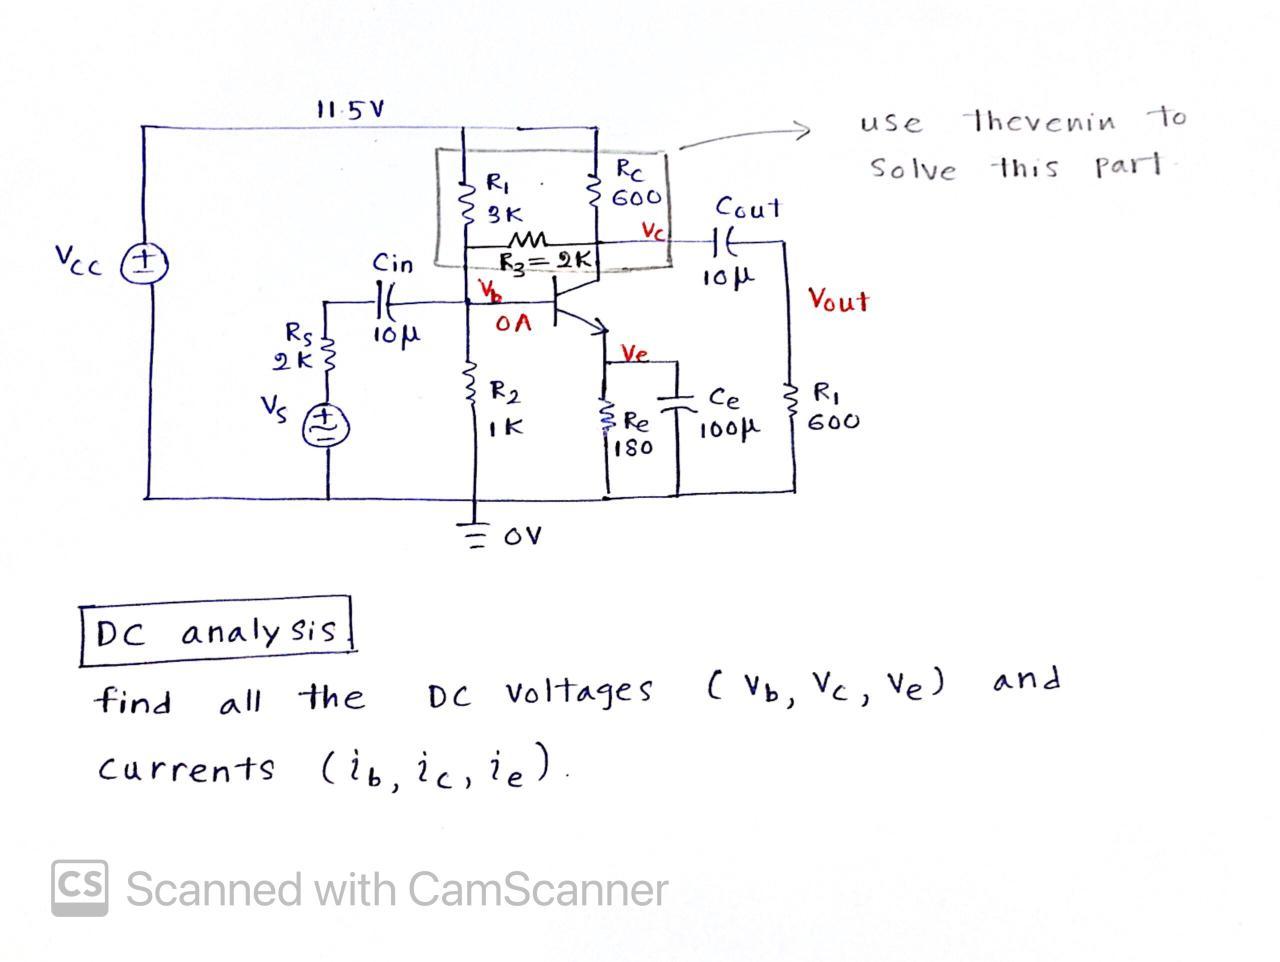 11.5V
use Thevenin to
solve this part
R1
3K
Rc
600
Cout
Vc
R3=2K
10μ
Vcc
Cin
Vb
0A
10μ
Vout
Rs
2K
Ve
Vs
R2
1K
Re
180
Ce
100μ
R1
600
0V
DC analysis
find all the DC voltages (Vb, Vc, Ve) and
currents (ib, ic, ie).
CS Scanned with CamScanner